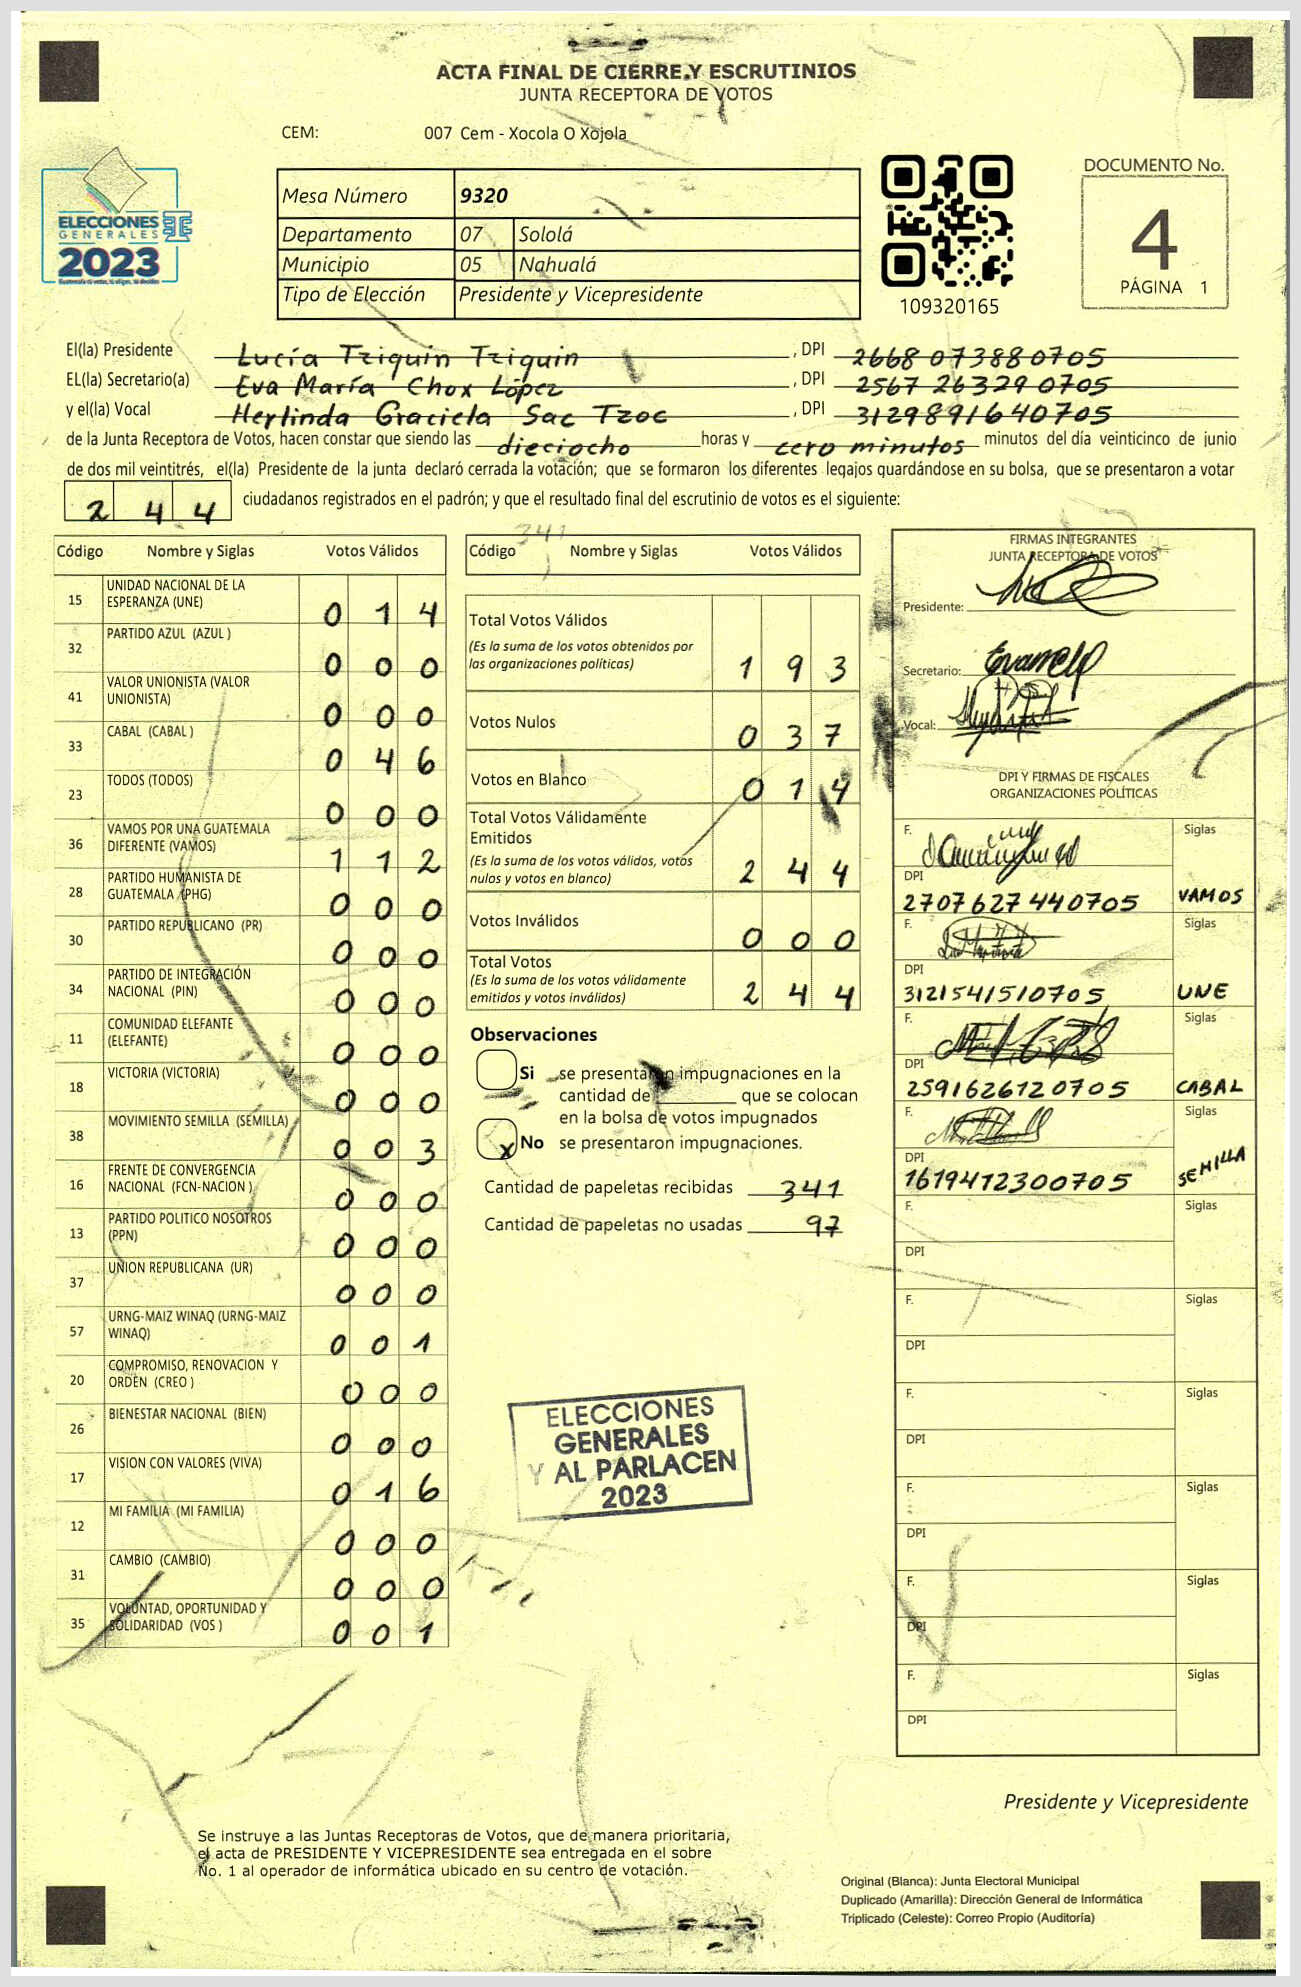 ACTA FINAL DE CIERRE Y ESCRUTINIOS
JUNTA RECEPTORA DE VOTOS
CEM: 007 Cem - Xocola O Xojola
ELECCIONES
GENERALES
2023
Mesa Número 9320
Departamento 07 Sololá
Municipio 05 Nahualá
Tipo de Elección Presidente y Vicepresidente
109320165
DOCUMENTO No.
4
PÁGINA 1
El(la) Presidente Lucía Tziquin Tziquin , DPI 2668 07388 0705
EL(la) Secretario(a) Eva María Chox López , DPI 2567 26329 0705
y el(la) Vocal Herlinda Graciela Sac Tzoc , DPI 3129891640705
de la Junta Receptora de Votos, hacen constar que siendo las dieciocho horas y cero minutos minutos del día veinticinco de junio
de dos mil veintitrés, el(la) Presidente de la junta declaró cerrada la votación; que se formaron los diferentes legajos quardándose en su bolsa, que se presentaron a votar
2 4 4 ciudadanos registrados en el padrón; y que el resultado final del escrutinio de votos es el siguiente:
Código Nombre y Siglas Votos Válidos
15 UNIDAD NACIONAL DE LA ESPERANZA (UNE) 0 1 4
32 PARTIDO AZUL (AZUL ) 0 0 0
41 VALOR UNIONISTA (VALOR UNIONISTA) 0 0 0
33 CABAL (CABAL ) 0 4 6
23 TODOS (TODOS) 0 0 0
36 VAMOS POR UNA GUATEMALA DIFERENTE (VAMOS) 1 1 2
28 PARTIDO HUMANISTA DE GUATEMALA (PHG) 0 0 0
30 PARTIDO REPUBLICANO (PR) 0 0 0
34 PARTIDO DE INTEGRACIÓN NACIONAL (PIN) 0 0 0
11 COMUNIDAD ELEFANTE (ELEFANTE) 0 0 0
18 VICTORIA (VICTORIA) 0 0 0
38 MOVIMIENTO SEMILLA (SEMILLA) 0 0 3
16 FRENTE DE CONVERGENCIA NACIONAL (FCN-NACION ) 0 0 0
13 PARTIDO POLITICO NOSOTROS (PPN) 0 0 0
37 UNION REPUBLICANA (UR) 0 0 0
57 URNG-MAIZ WINAQ (URNG-MAIZ WINAQ) 0 0 1
20 COMPROMISO, RENOVACION Y ORDEN (CREO ) 0 0 0
26 BIENESTAR NACIONAL (BIEN) 0 0 0
17 VISION CON VALORES (VIVA) 0 1 6
12 MI FAMILIA (MI FAMILIA) 0 0 0
31 CAMBIO (CAMBIO) 0 0 0
35 VOLUNTAD, OPORTUNIDAD Y SOLIDARIDAD (VOS ) 0 0 1
341
Código Nombre y Siglas Votos Válidos
Total Votos Válidos
(Es la suma de los votos obtenidos por
las organizaciones políticas) 1 9 3
Votos Nulos 0 3 7
Votos en Blanco 0 1 4
Total Votos Válidamente
Emitidos
(Es la suma de los votos válidos, votos
nulos y votos en blanco) 2 4 4
Votos Inválidos 0 0 0
Total Votos
(Es la suma de los votos válidamente
emitidos y votos inválidos) 2 4 4
Observaciones
Si se presentaron impugnaciones en la
cantidad de que se colocan
en la bolsa de votos impugnados
x No se presentaron impugnaciones.
Cantidad de papeletas recibidas 341
Cantidad de papeletas no usadas 97
ELECCIONES
GENERALES
Y AL PARLACEN
2023
FIRMAS INTEGRANTES
JUNTA RECEPTORA DE VOTOS
Presidente:
Secretario:
Vocal:
DPI Y FIRMAS DE FISCALES
ORGANIZACIONES POLÍTICAS
F. Siglas
DPI
2707627440705 VAMOS
F. Siglas
DPI
3121541510705 UNE
F. Siglas
DPI
2591626120705 CABAL
F. Siglas
DPI
1619412300705 SEMILLA
F. Siglas
DPI
F. Siglas
DPI
F. Siglas
DPI
F. Siglas
DPI
F. Siglas
DPI
F. Siglas
DPI
Presidente y Vicepresidente
Se instruye a las Juntas Receptoras de Votos, que de manera prioritaria,
el acta de PRESIDENTE Y VICEPRESIDENTE sea entregada en el sobre
No. 1 al operador de informática ubicado en su centro de votación.
Original (Blanca): Junta Electoral Municipal
Duplicado (Amarilla): Dirección General de Informática
Triplicado (Celeste): Correo Propio (Auditoría)